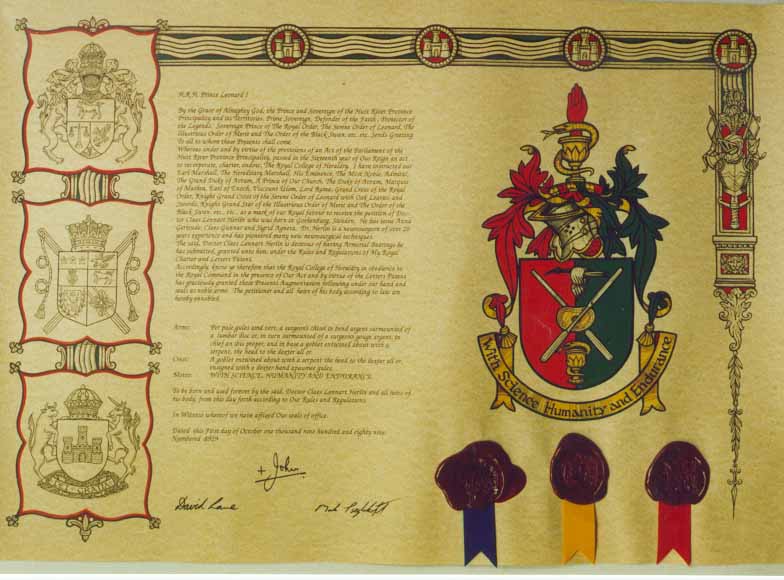 H.R.H. Prince Leonard I
By the Grace of Almighty God, the Prince and Sovereign of the Hutt River Province
Principality and its Territories, Prime Sovereign, Defender of the Faith, Protector of
the Legends, Sovereign Prince of The Royal Order, The Serene Order of Leonard, The
Illustrious Order of Merit and The Order of the Black Swan, etc. etc. Sends Greeting
To all to whom these Presents shall come.
Whereas under and by virtue of the provisions of an Act of the Parliament of the
Hutt River Province Principality, passed in the Sixteenth year of Our Reign an act
to incorporate, charter, endow, The Royal College of Heraldry, I have instructed our
Earl Marshall, The Hereditary Marshall, His Eminence, The Most Noble, Admiral,
The Grand Duke of Avram, A Prince of Our Church, The Duke of Avram, Marquis
of Matthra, Earl of Enoch, Viscount Glenn, Lord Rama, Grand Cross of the Royal
Order, Knight Grand Cross of the Serene Order of Leonard with Oak Leaves and
Swords, Knight Grand Star of the Illustrious Order of Merit and The Order of the
Black Swan, etc., etc., as a mark of our Royal favour to receive the petition of Doc-
tor Claes Lennart Herlin who was born at Gothenburg, Sweden. He has issue Anna
Gertrude, Claes Gunnar and Sigrid Agneta. Dr. Herlin is a neurosurgeon of over 20
years experience and has pioneered many new neurosurgical techniques.
The said, Doctor Claes Lennart Herlin is desirous of having Armorial Bearings be
has submitted, granted unto him under the Rules and Regulations of My Royal
Charter and Letters Patent.
Accordingly, know ye therefore that the Royal College of Heraldry in obedience to
the Royal Command in the presence of Our Act and by virtue of the Letters Patent
has graciously granted these Presents Augmentation following under our hand and
seals as noble arms. The petitioner and all heirs of his body according to law are
hereby ennobled.
Arms: Per pale gules and vert, a surgeon's chisel in bend argent surmounted of
a lumbar disc or, in turn surmounted of a surgeons gouge argent, in
chief an ibis proper, and in base a goblet entwined about with a
serpent, the head to the dexter all or.
Crest: A goblet entwined about with a serpent the head to the dexter all or,
ensigned with a dexter hand apaumee gules.
Motto: WITH SCIENCE, HUMANITY AND ENDURANCE.
To be born and used forever by the said, Doctor Claes Lennart Herlin and all heirs of
his body, from this day forth according to Our Rules and Regulations.
In Witness whereof we have affixed Our seals of office.
Dated this First day of October one thousand nine hundred and eighty nine.
Numbered 4929
+ John
David Lane
With Science Humanity and Endurance